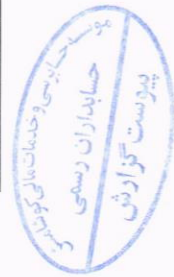 موسسه حسابرسی و خدمات مالی کوشا منش
حسابداران رسمی
پیوست گزارش